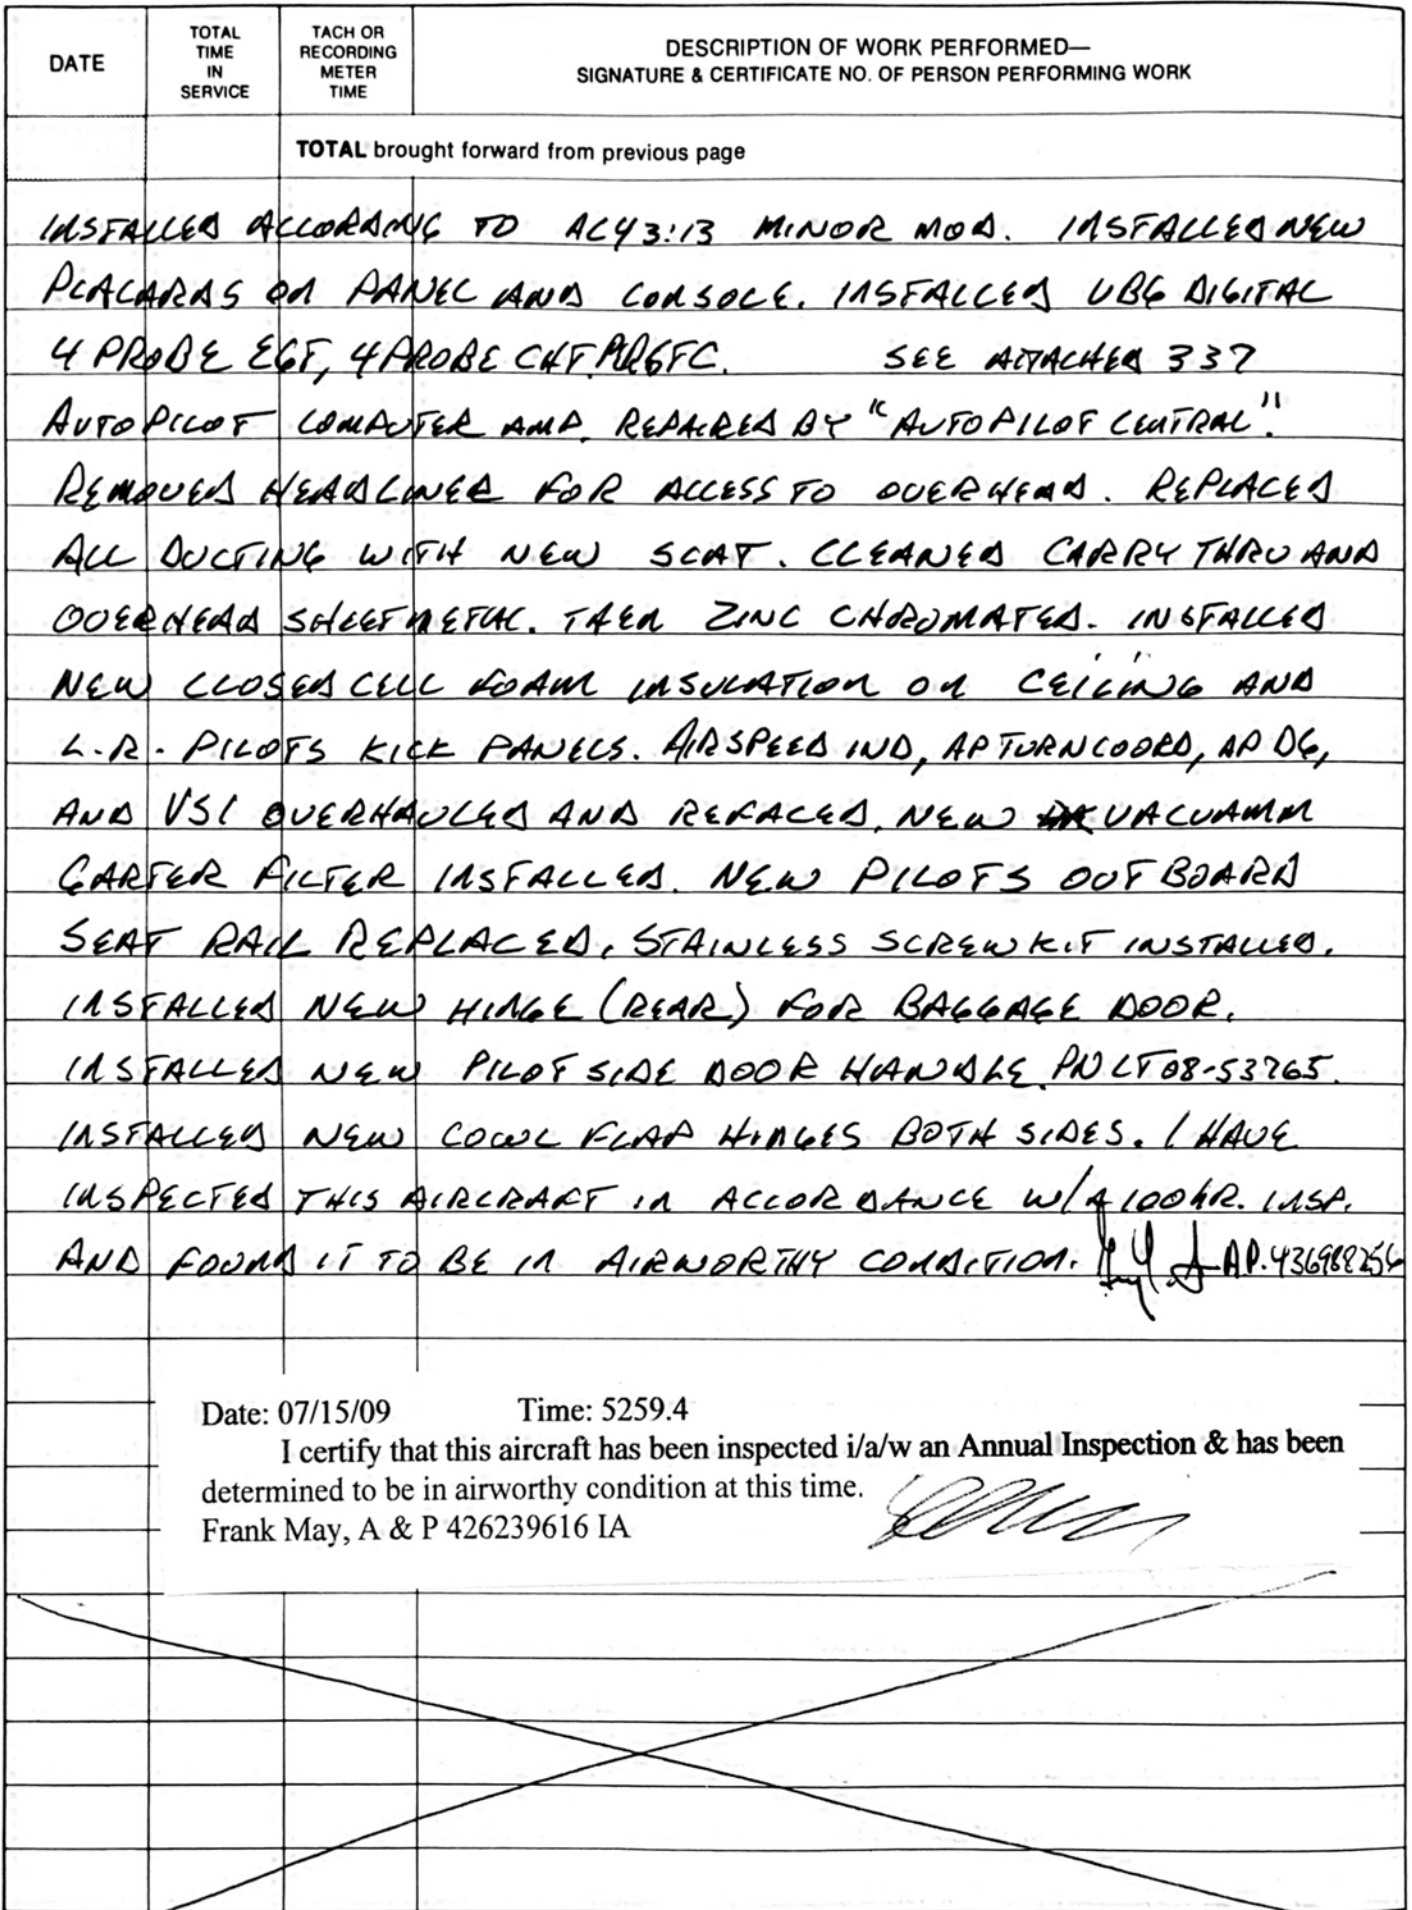 DATE
TOTAL TIME IN SERVICE
TACH OR RECORDING METER TIME
DESCRIPTION OF WORK PERFORMED—
SIGNATURE & CERTIFICATE NO. OF PERSON PERFORMING WORK
TOTAL brought forward from previous page
INSTALLED ACCORDING TO AC43:13 MINOR MOD. INSTALLED NEW
PLACARDS ON PANEL AND CONSOLE. INSTALLED UBG DIGITAL
4 PROBE EGT, 4 PROBE CHT. SEE ATTACHED 337
AUTOPILOT COMPUTER AMP. REPAIRED BY "AUTOPILOT CENTRAL".
REMOVED HEADLINER FOR ACCESS TO OVERHEAD. REPLACED
ALL DUCTING WITH NEW SCAT. CLEANED CARRY THRU AND
OVERHEAD SHEETMETAL. THEN ZINC CHROMATED. INSTALLED
NEW CLOSED CELL FOAM INSULATION ON CEILING AND
L.R. PILOTS KICK PANELS. AIRSPEED IND, AP TURN COORD, AP DG,
AND VSI OVERHAULED AND REFACED. NEW VACUAMM
GARTER FILTER INSTALLED. NEW PILOTS OUTBOARD
SEAT RAIL REPLACED. STAINLESS SCREW KIT INSTALLED.
INSTALLED NEW HINGE (REAR) FOR BAGGAGE DOOR.
INSTALLED NEW PILOT SIDE DOOR HANDLE PN LT08-53765.
INSTALLED NEW COWL FLAP HINGES BOTH SIDES. I HAVE
INSPECTED THIS AIRCRAFT IN ACCORDANCE W/A 100HR. INSP.
AND FOUND IT TO BE IN AIRWORTHY CONDITION. A.P. 436988256
Date: 07/15/09 Time: 5259.4
I certify that this aircraft has been inspected i/a/w an Annual Inspection & has been
determined to be in airworthy condition at this time.
Frank May, A & P 426239616 IA